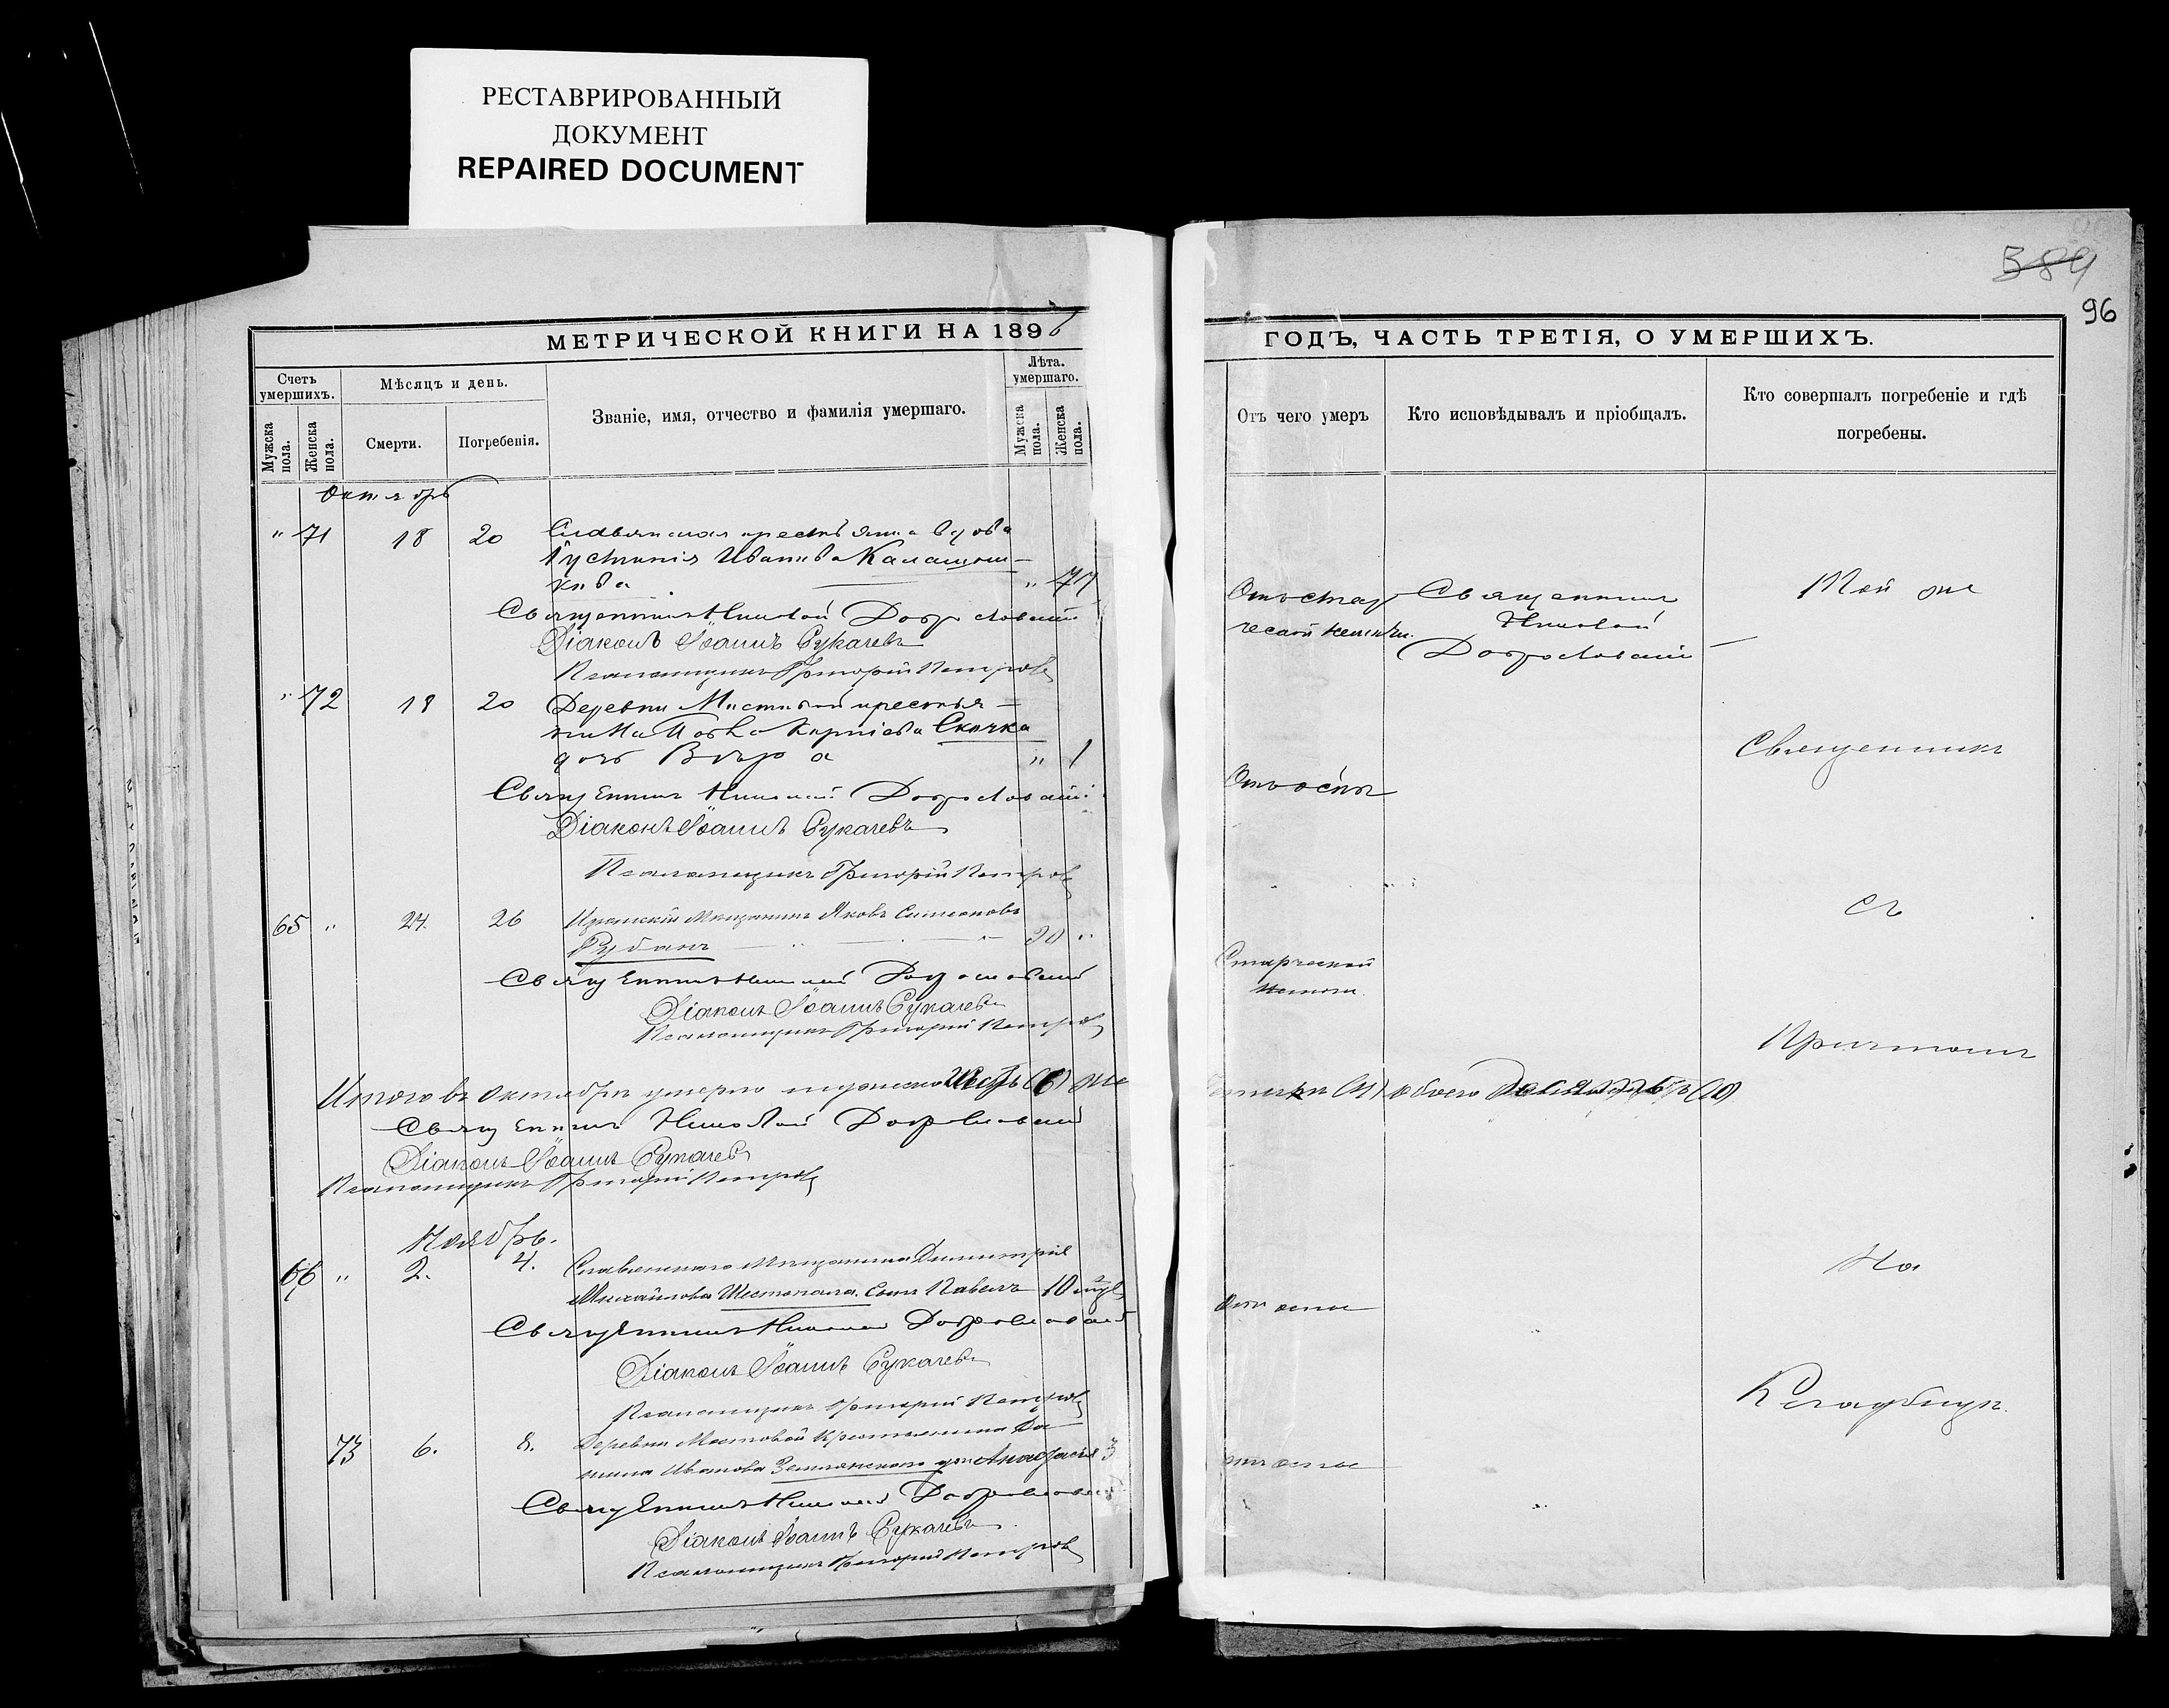 РЕСТАВРИРОВАННЫЙ
ДОКУМЕНТ
REPAIRED DOCUMENT
389
96
МЕТРИЧЕСКОЙ КНИГИ НА 1896
ГОДЪ, ЧАСТЬ ТРЕТІЯ, О УМЕРШИХЪ.
Счетъ умершихъ.
Мужска пола.
Женска пола.
Мѣсяцъ и день.
Смерти.
Погребенія.
Званіе, имя, отчество и фамилія умершаго.
Лѣта. умершаго.
Мужска пола.
Женска пола.
Отъ чего умеръ
Кто исповѣдывалъ и пріобщалъ.
Кто совершалъ погребеніе и гдѣ
погребены.
Октябрь
" 71 18 20 Славянская крестьянка вдова
Іустинія Иванова Калашни-
кова " 77
Священникъ Николай Доброславскій
Діаконъ Іоаннъ Рукачевъ
Псаломщикъ Григорій Петровъ
Отъ стар-
ческой немощи.
Священникъ
Николай
Доброславскій
Той же
" 72 18 20 Деревни Мостовой крестья-
нина Скачка
дочь Вѣра " 1
Священникъ Николай Доброславскій
Діаконъ Іоаннъ Рукачевъ
Псаломщикъ Григорій Петровъ
Отъ оспы
Священникъ
65 " 24. 26 Изюмскій мѣщанинъ Яковъ Симеоновъ
Рубанъ 90 "
Священникъ Николай Доброславскій
Діаконъ Іоаннъ Рукачевъ
Псаломщикъ Григорій Петровъ
Старческой
немощи
съ
Причтомъ
Итого въ октябрѣ умерло мужеска шесть (6) же
(4) обоего десять (10)
Священникъ Николай Доброславскій
Діаконъ Іоаннъ Рукачевъ
Псаломщикъ Григорій Петровъ
Ноябрь.
66 " 2. 4. Славянскаго мѣщанина Димитрія
Михайлова Шестопала сынъ Павелъ 10
Священникъ Николай Доброславскій
Діаконъ Іоаннъ Рукачевъ
Псаломщикъ Григорій Петровъ
Отъ оспы
На
Кладбищѣ.
73 6. 8. Деревни Мостовой крестьянина Да-
Иванова Землянского дочь Анастасія 3
Священникъ Николай Доброславскій
Діаконъ Іоаннъ Рукачевъ
Псаломщикъ Григорій Петровъ
Отъ оспы